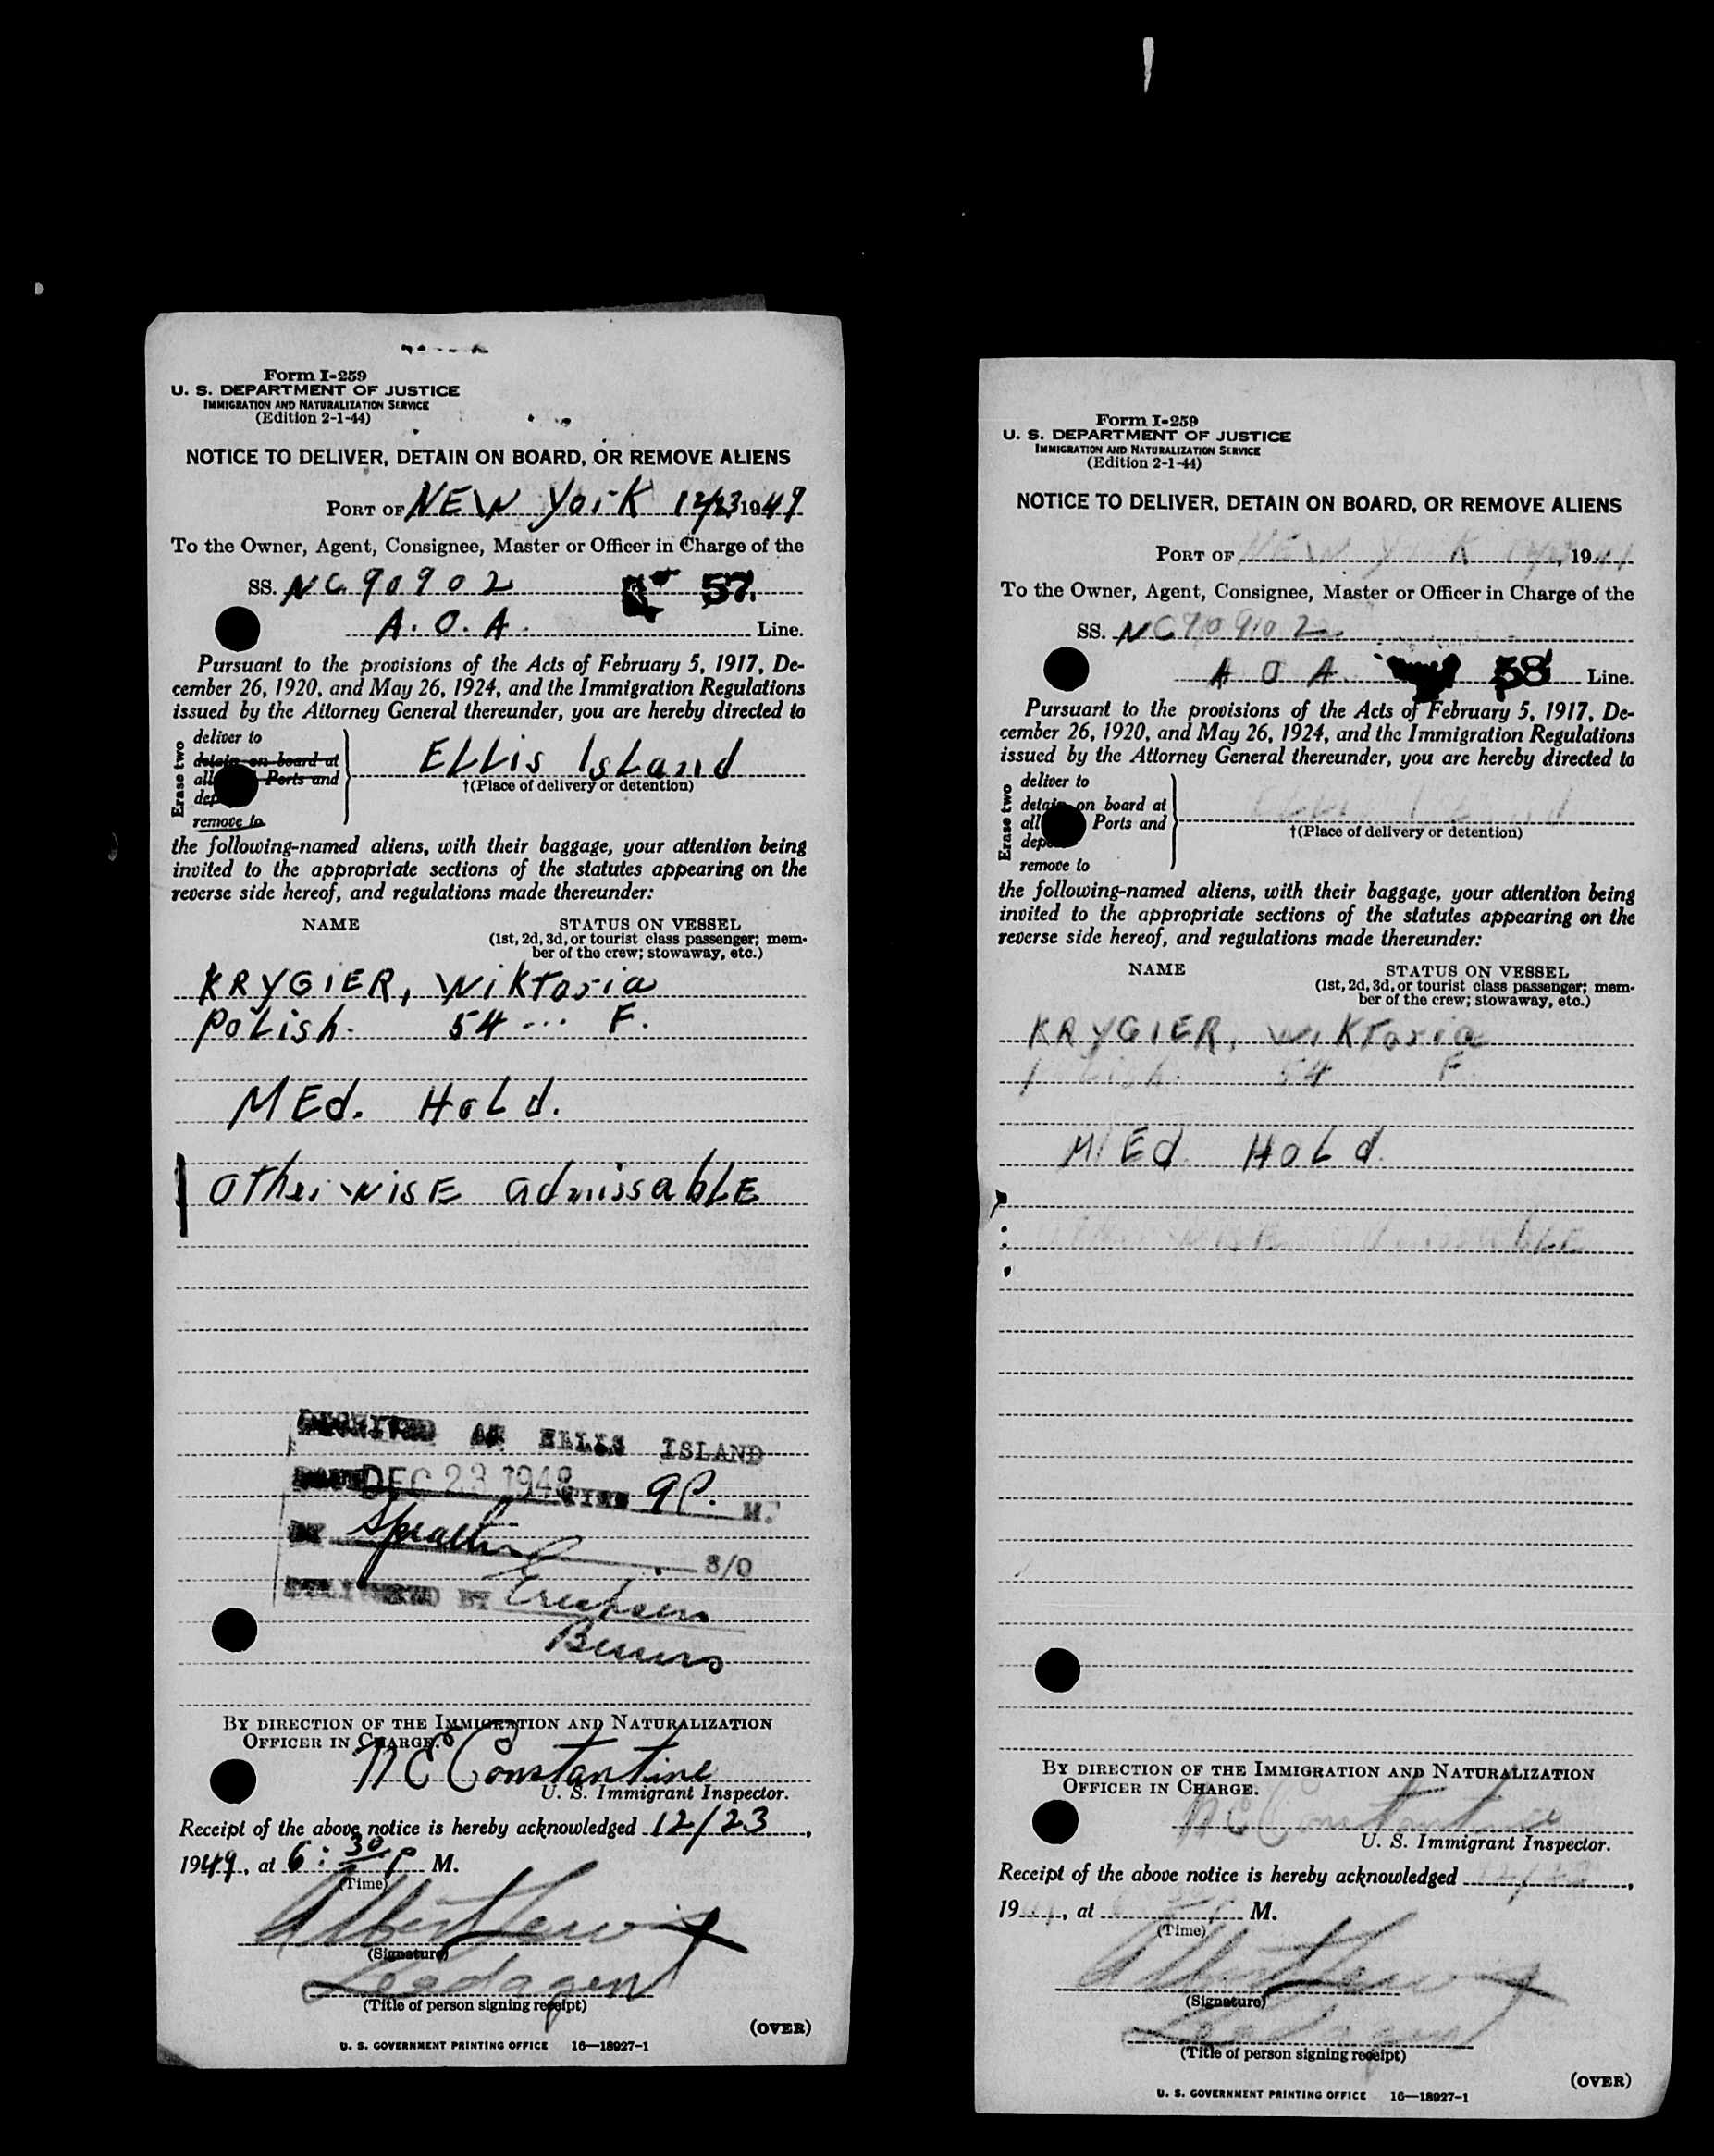 Form I-259
U. S. DEPARTMENT OF JUSTICE
IMMIGRATION AND NATURALIZATION SERVICE
(Edition 2-1-44)
NOTICE TO DELIVER, DETAIN ON BOARD, OR REMOVE ALIENS
PORT OF NEW York 12/23, 1949
To the Owner, Agent, Consignee, Master or Officer in Charge of the
SS. NC90902 57
A.O.A. Line.
Pursuant to the provisions of the Acts of February 5, 1917, De-
cember 26, 1920, and May 26, 1924, and the Immigration Regulations
issued by the Attorney General thereunder, you are hereby directed to
Erase two
deliver to
detain on board at
all Ports and
dep
remove to
ELLis IsLand
†(Place of delivery or detention)
the following-named aliens, with their baggage, your attention being
invited to the appropriate sections of the statutes appearing on the
reverse side hereof, and regulations made thereunder:
NAME STATUS ON VESSEL
(1st, 2d, 3d, or tourist class passenger; mem-
ber of the crew; stowaway, etc.)
KRYGIER, Wiktoria
PoLish. 54 --- F.
MEd. HoLd.
OtherwisE admissabLE
AT ELLIS ISLAND
DEC 23 194 TIME 9P. M.
BY S/O
BY
By direction of the Immigration and Naturalization
Officer in Charge.
N E Constantine
U. S. Immigrant Inspector.
Receipt of the above notice is hereby acknowledged 12/23,
1949, at 6:30 P M.
(Time)
Albert Lewis
(Signature)
Leadagent
(Title of person signing receipt)
(OVER)
U. S. GOVERNMENT PRINTING OFFICE 16—18927-1
Form I-259
U. S. DEPARTMENT OF JUSTICE
IMMIGRATION AND NATURALIZATION SERVICE
(Edition 2-1-44)
NOTICE TO DELIVER, DETAIN ON BOARD, OR REMOVE ALIENS
PORT OF NEW York, 19
To the Owner, Agent, Consignee, Master or Officer in Charge of the
SS. NC90902
A O A 58 Line.
Pursuant to the provisions of the Acts of February 5, 1917, De-
cember 26, 1920, and May 26, 1924, and the Immigration Regulations
issued by the Attorney General thereunder, you are hereby directed to
Erase two
deliver to
detain on board at
all Ports and
dep
remove to
†(Place of delivery or detention)
the following-named aliens, with their baggage, your attention being
invited to the appropriate sections of the statutes appearing on the
reverse side hereof, and regulations made thereunder:
NAME STATUS ON VESSEL
(1st, 2d, 3d, or tourist class passenger; mem-
ber of the crew; stowaway, etc.)
KRYGIER, Wiktoria
PoLish. 54 F.
MEd HoLd.
OtherwisE admissabLE
By direction of the Immigration and Naturalization
Officer in Charge.
N E Constantine
U. S. Immigrant Inspector.
Receipt of the above notice is hereby acknowledged 12/23,
19, at M.
(Time)
Albert Lewis
(Signature)
Leadagent
(Title of person signing receipt)
(OVER)
U. S. GOVERNMENT PRINTING OFFICE 16—18927-1